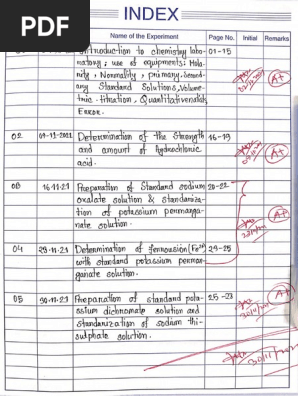 PDF
INDEX
Name of the Experiment Page No. Initial Remarks
Introduction to chemistry labo- 01-15
ratory; use of equipments; Mola-
rity, Normality, primary. Second-
ary Standard Solutions, Volume-
tric titration, Quantitative analysis,
Error.
A+
02 Determination of the Strength 16-19
and amount of hydrochloric
acid.
A+
03 16-11-21 Preparation of Standard sodium 20-22
oxalate solution & standariza-
tion of potassium permanga-
nate solution.
A+
04 Determination of ferrousion (Fe²⁺)
with standard potassium perman-
ganate solution.
05 Preparation of standard pota-
ssium dichromate solution and
standarization of sodium thi-
sulphate solution.
A+
30/11/